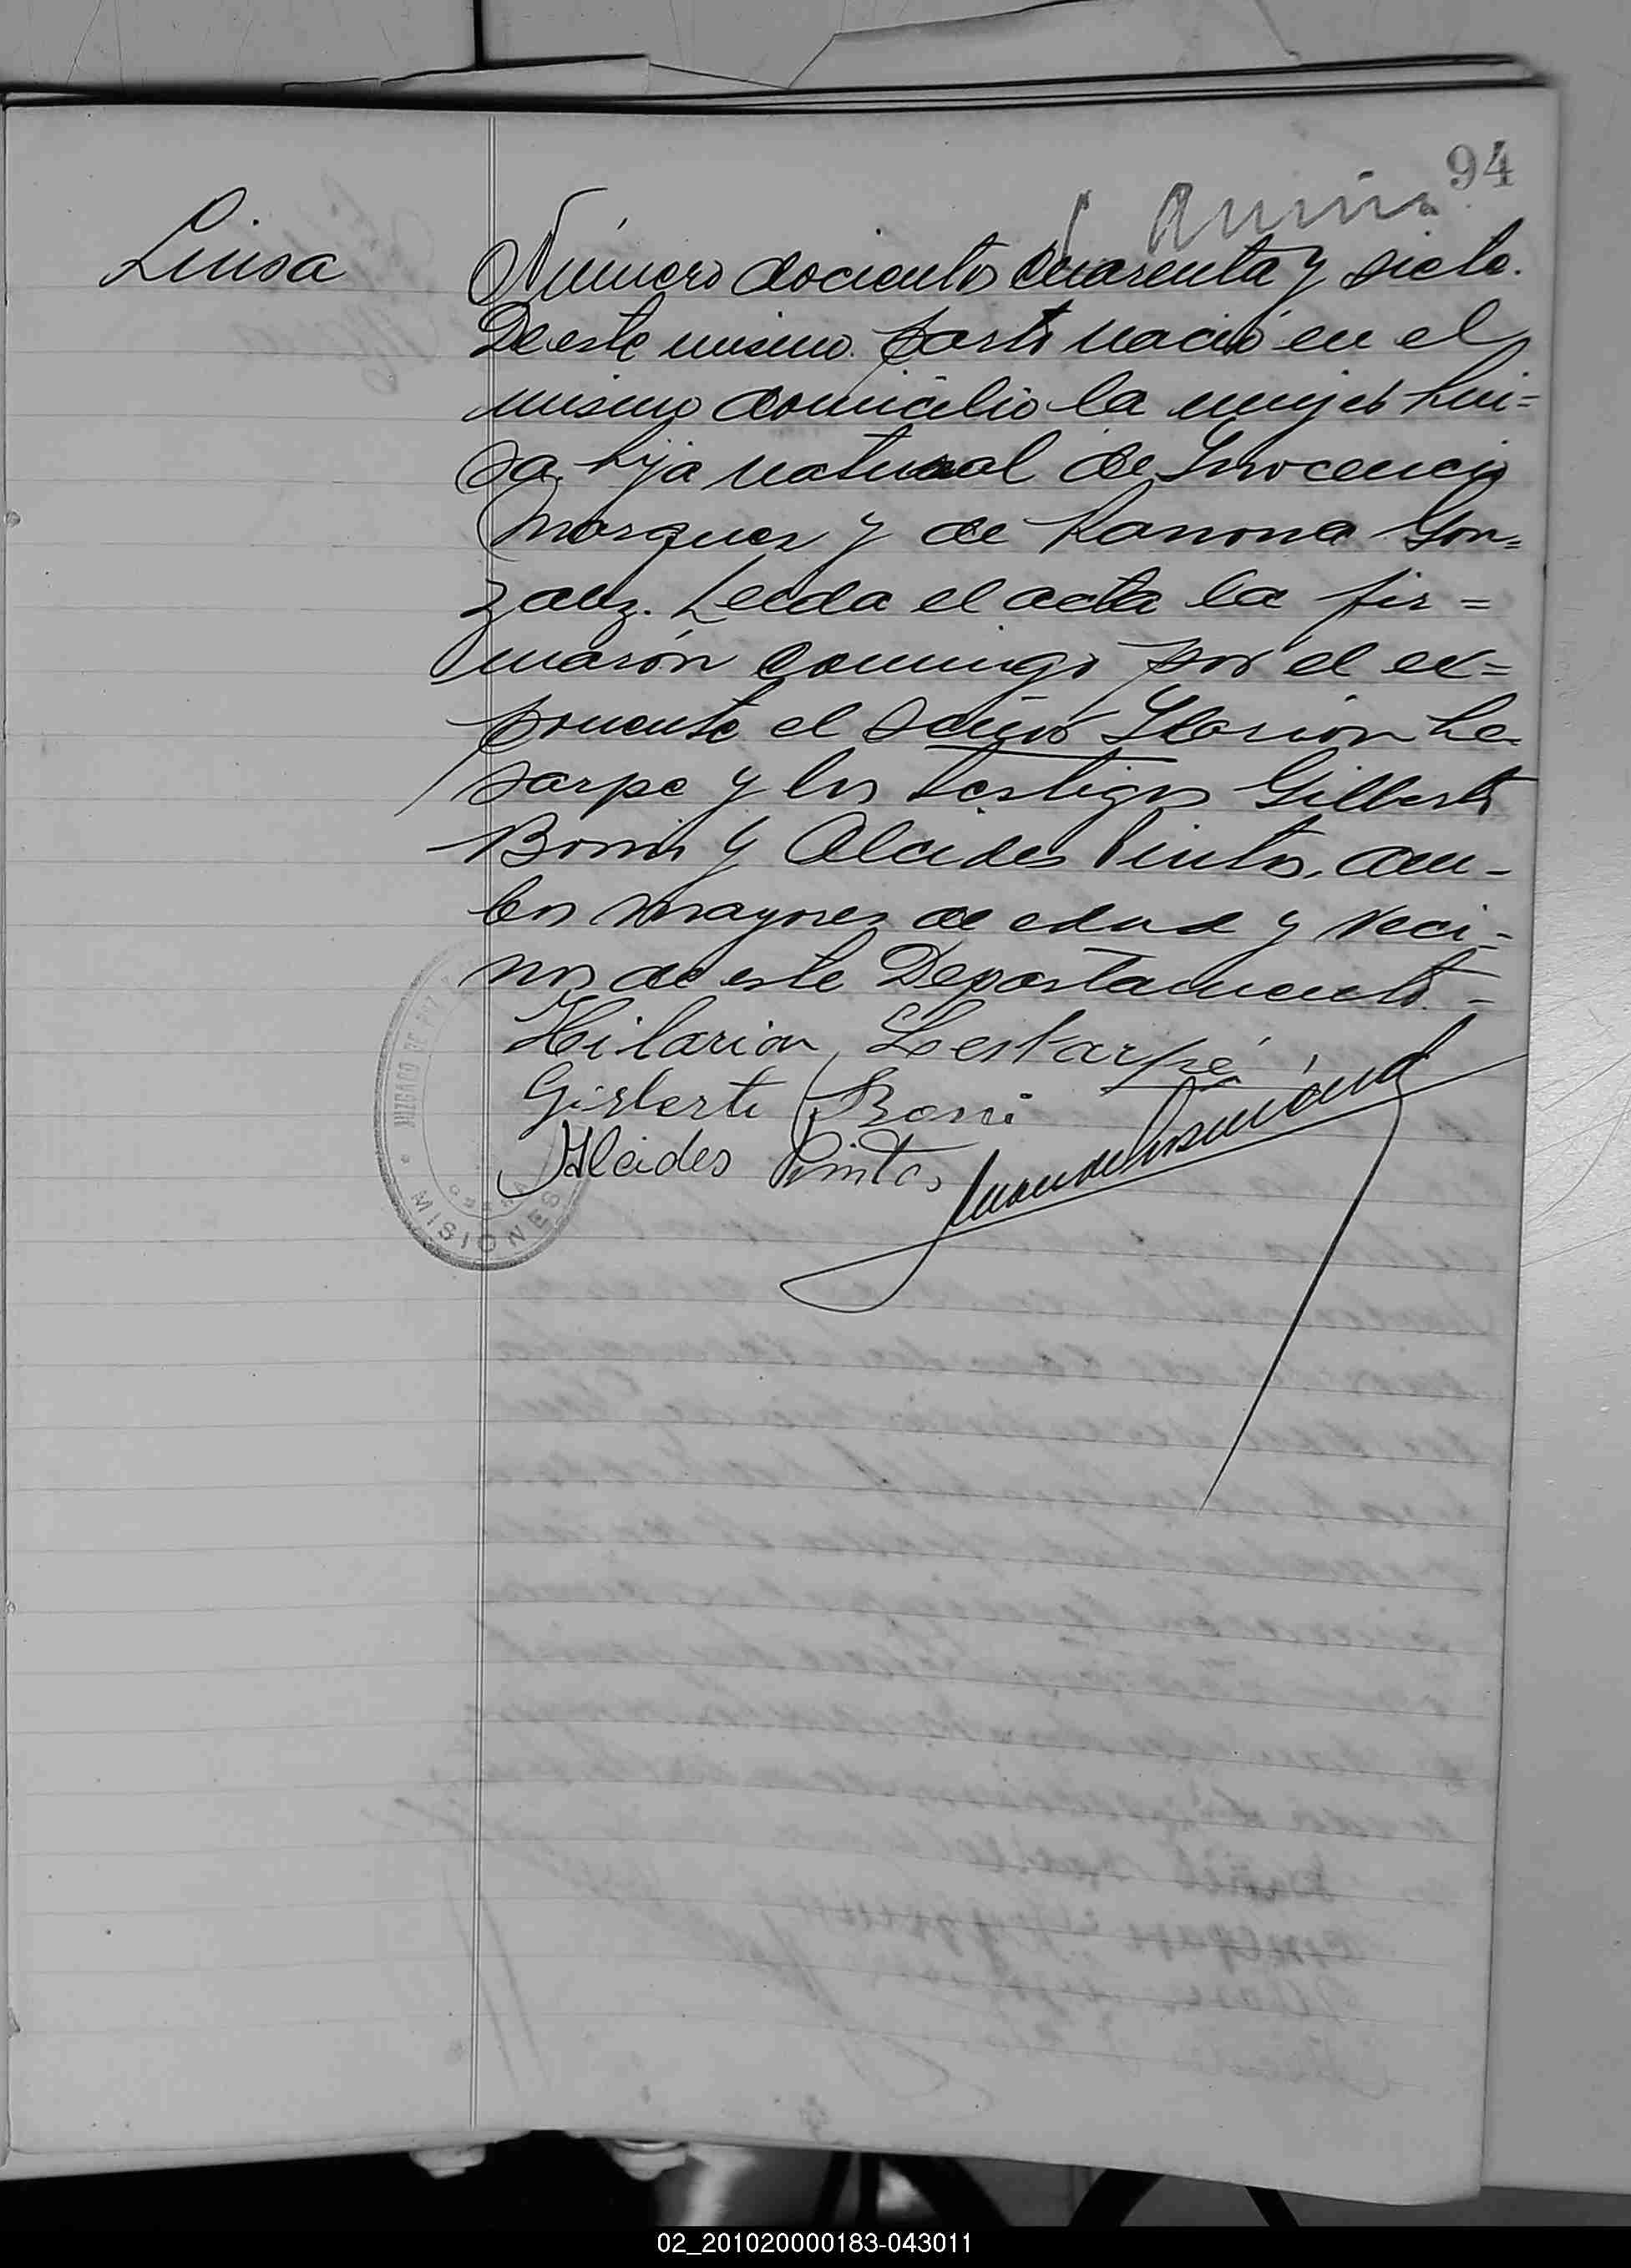 94
Luisa
Número docientos Cuarenta y siete.
De este mismo parto nació en el
mismo domicilio la mujer Lui=
sa hija natural de Inocencio
Marquez y de Ramona Gon=
zalez. Leida el acta la fir=
marón conmigo por el ex=
ponente el Señor Ilarion Le
sarpe y los testigos Gilberto
Boni y Alcides Pintos, am-
bos mayores de edad y veci=
nos de este Departamento.=
Hilarion Lestarpé
Gisberto Boni
Alcides Pintos
JUZGADO DE PAZ
MISIONES
02_201020000183-043011